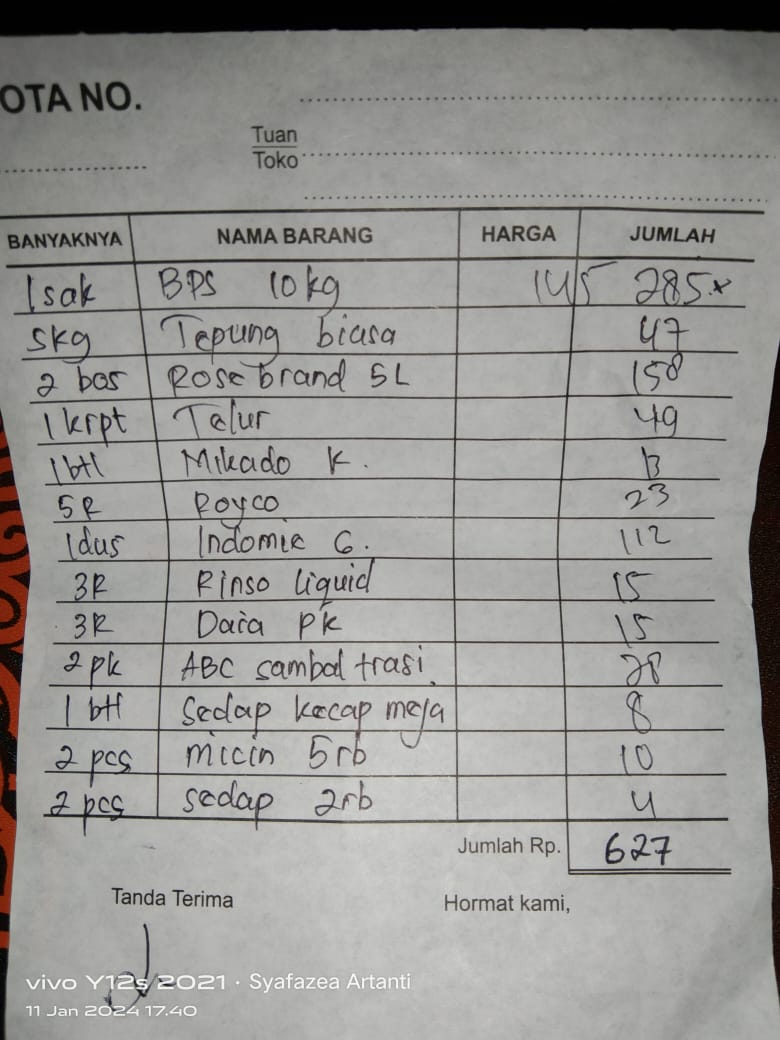 OTA NO.
Tuan
Toko
BANYAKNYA NAMA BARANG HARGA JUMLAH
1 sak BPS 10 kg 145 285 x
5 kg Tepung biasa 47
2 bos Rose brand 5L 158
1 krpt Telur 49
1 btl Mikado K. 13
5R Royco 23
1 dus Indomie G. 112
3R Rinso liquid 15
3R Daia pk 15
2 pk ABC sambal trasi. 28
1 btl Sedap kecap meja 8
2 pcs micin 5rb 10
2 pcs sedap 2rb 4
Jumlah Rp. 627
Tanda Terima Hormat kami,
vivo Y12s 2021 · Syafazea Artanti
11 Jan 2024 17.40